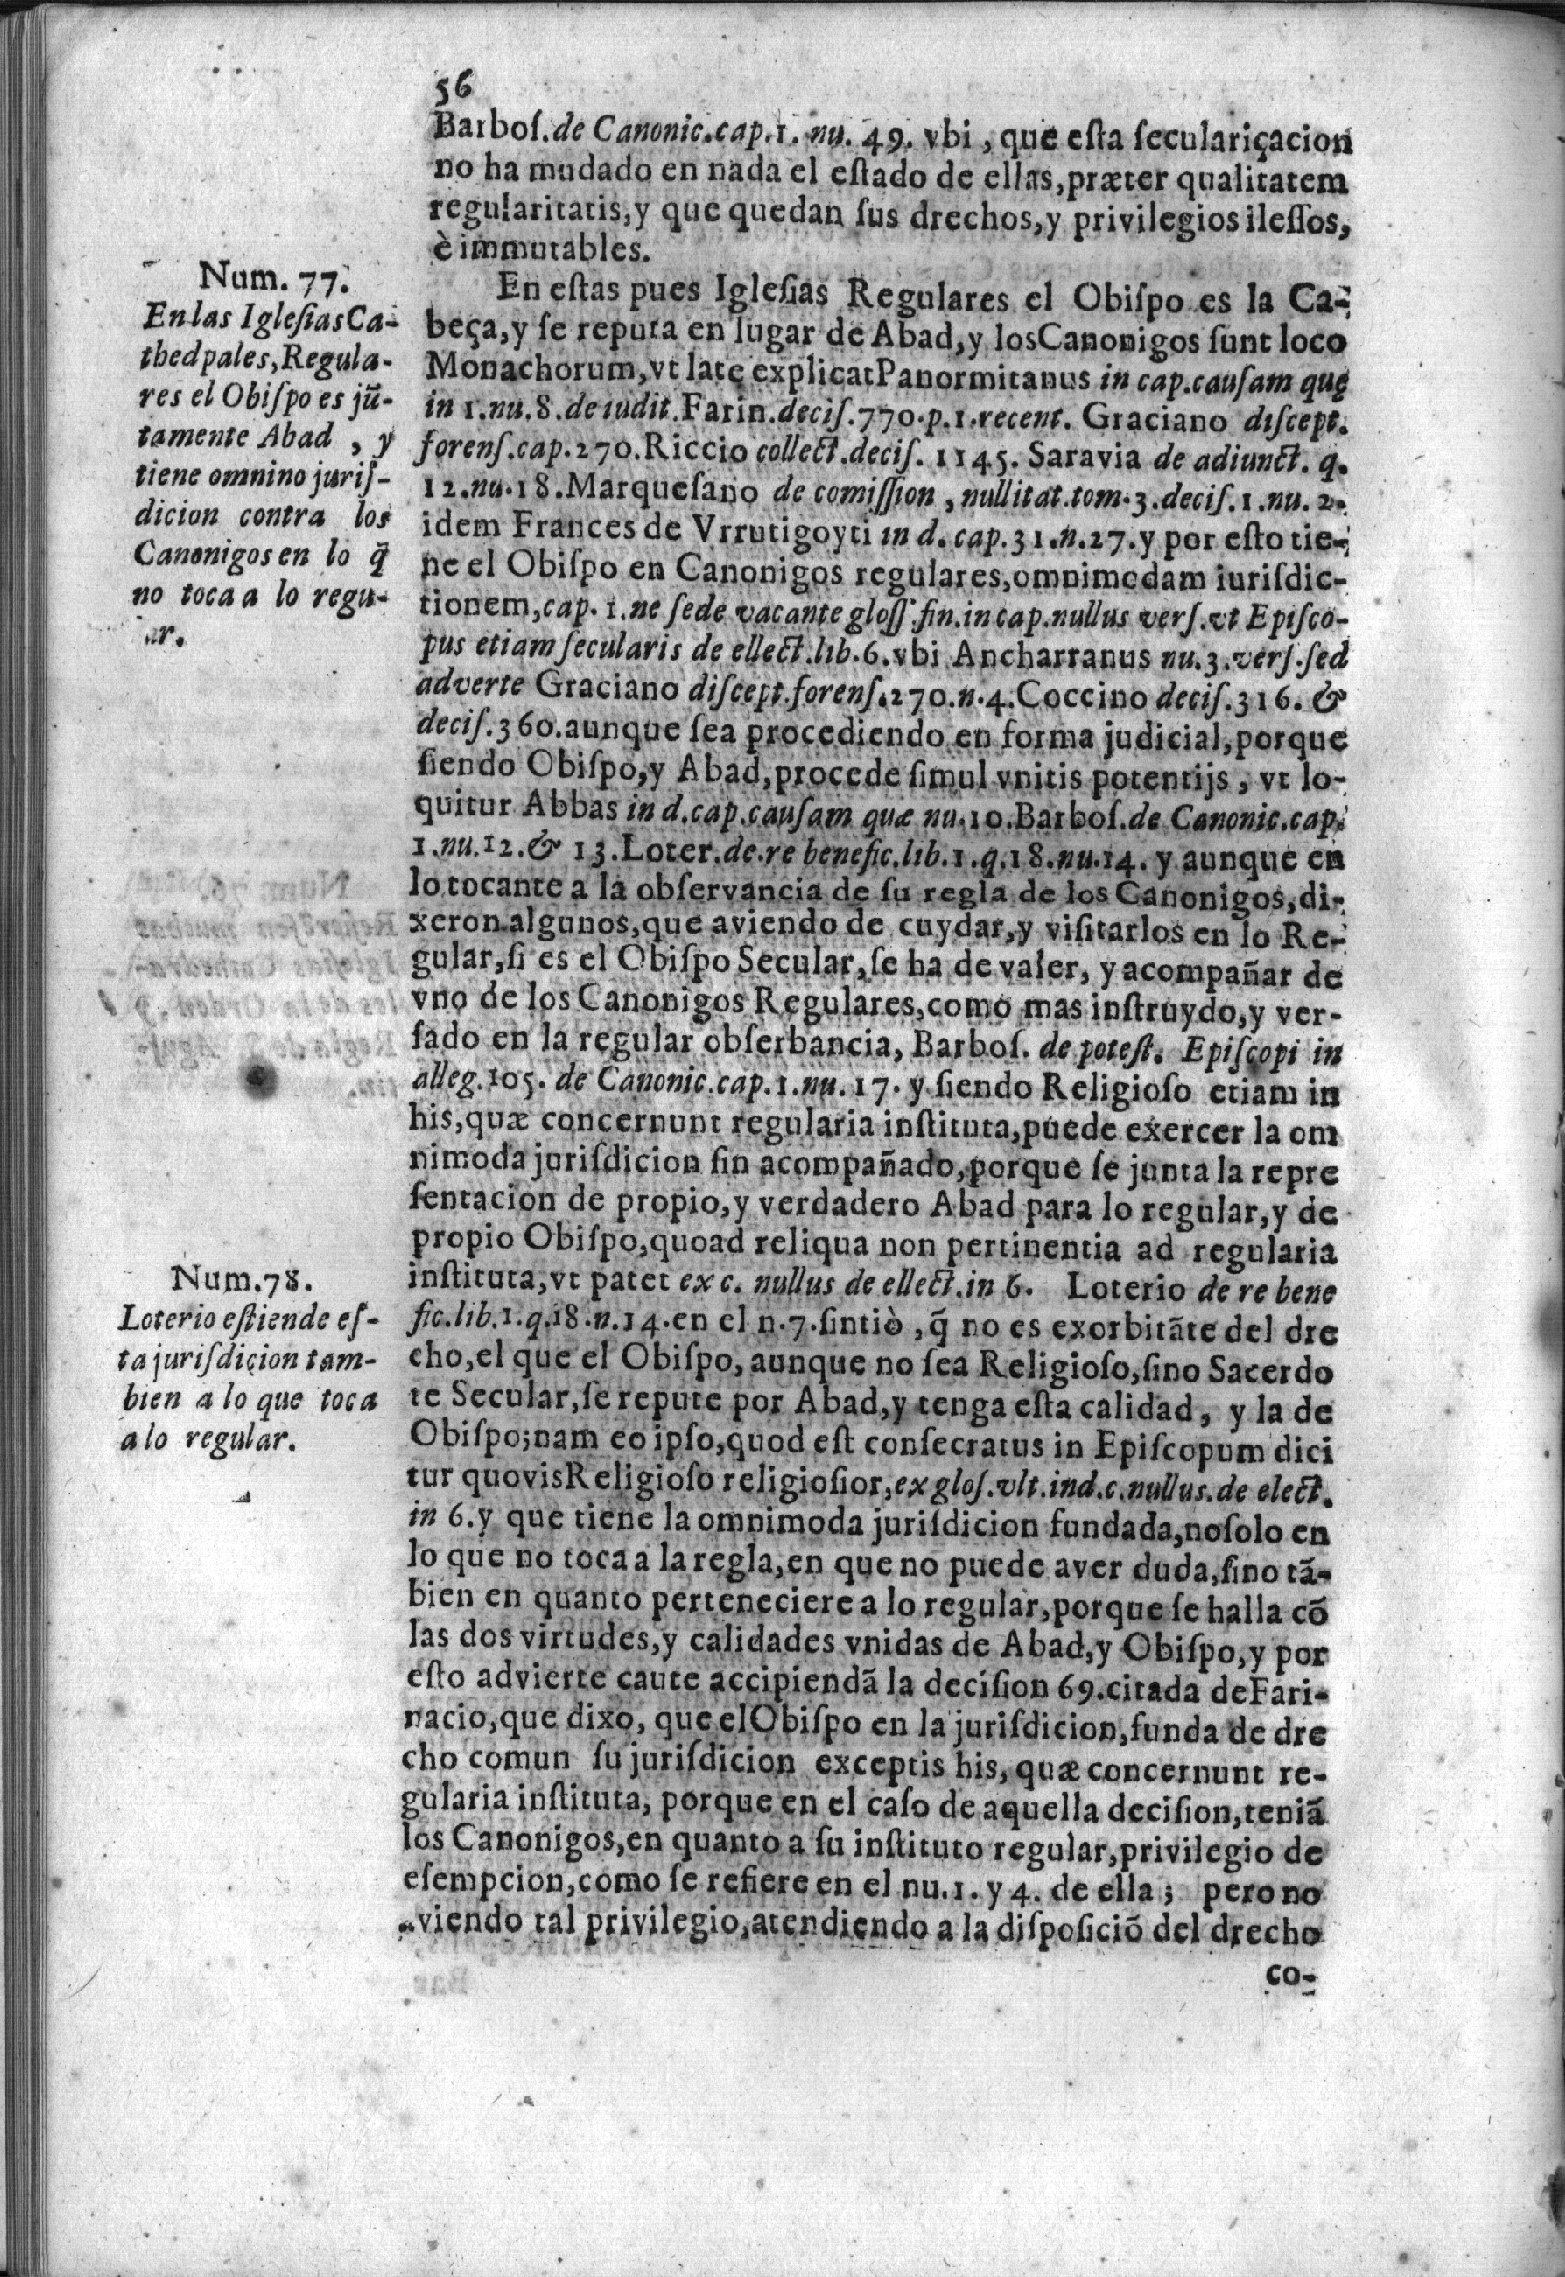 56
Barboſ.de Canonic.cap.1. nu. 49. vbi , que eſta ſeculariçacion
no ha mudado en nada el eſtado de ellas,præter qualitatem
regularitatis,y que quedan ſus drechos,y privilegios ileſſos,
è immutables.
Num. 77.
En las Igleſias Ca-
thedpales,Regula-
res el Obiſpo es jũ-
tamente Abad , y
tiene omnino juriſ-
dicion contra los
Canonigos en lo q̃
no toca a lo regu-
ar.
En eſtas pues Igleſias Regulares el Obiſpo es la Ca-
beça,y ſe reputa en lugar de Abad,y losCanonigos ſunt loco
Monachorum,vt late explicatPanormitanus in cap.cauſam quę
in 1.nu.8.de iudit.Farin.deciſ.770.p.1.recent. Graciano diſcept.
forenſ.cap.270.Riccio collect.deciſ. 1145. Saravia de adiunct. q.
12.nu.18.Marqueſano de comiſſion , nullitat.tom.3.deciſ.1.nu.2.
idem Frances de Vrrutigoyti in d. cap.31.n.27.y por eſto tie-
ne el Obiſpo en Canonigos regulares,omnimodam iuriſdic-
tionem,cap. 1.ne ſede vacante gloſſ.fin.in cap.nullus verſ.vt Epiſco-
pus etiam ſecularis de ellect.lib.6.vbi Ancharranus nu.3.verſ.ſed
adverte Graciano diſcept.forenſ.270.n.4.Coccino deciſ.316. &
deciſ.360.aunque ſea procediendo en forma judicial,porque
ſiendo Obiſpo,y Abad,procede ſimul vnitis potentijs , vt lo-
quitur Abbas in d.cap.cauſam quæ nu.10.Barboſ.de Canonic.cap.
1.nu.12.& 13.Loter.de re benefic.lib.1.q.18.nu.14. y aunque en
lo tocante a la obſervancia de ſu regla de los Canonigos,di-
xeron algunos,que aviendo de cuydar,y viſitarlos en lo Re-
gular,ſi es el Obiſpo Secular,ſe ha de valer, y acompañar de
vno de los Canonigos Regulares,como mas inſtruydo,y ver-
ſado en la regular obſerbancia, Barboſ. de poteſt. Epiſcopi in
alleg.105. de Canonic.cap.1.nu.17. y ſiendo Religioſo etiam in
his,quæ concernunt regularia inſtituta,puede exercer la om
nimoda juriſdicion ſin acompañado,porque ſe junta la repre
ſentacion de propio,y verdadero Abad para lo regular,y de
propio Obiſpo,quoad reliqua non pertinentia ad regularia
inſtituta,vt patet ex c. nullus de ellect.in 6. Loterio de re bene
fic.lib.1.q.18.n.14.en el n.7.ſintiò ,q̃ no es exorbitãte del dre
cho,el que el Obiſpo, aunque no ſea Religioſo,ſino Sacerdo
te Secular,ſe repute por Abad,y tenga eſta calidad, y la de
Obiſpo;nam eo ipſo,quod eſt conſecratus in Epiſcopum dici
tur quovisReligioſo religioſior,ex gloſ.vlt.ind.c.nullus.de elect.
in 6.y que tiene la omnimoda juriſdicion fundada,noſolo en
lo que no toca a la regla,en que no puede aver duda,ſino tã-
bien en quanto perteneciere a lo regular,porque ſe halla cõ
las dos virtudes,y calidades vnidas de Abad,y Obiſpo,y por
eſto advierte caute accipiendã la deciſion 69.citada deFari-
nacio,que dixo, que elObiſpo en la juriſdicion,funda de dre
cho comun ſu juriſdicion exceptis his, quæ concernunt re-
gularia inſtituta, porque en el caſo de aquella deciſion,teniã
los Canonigos,en quanto a ſu inſtituto regular,privilegio de
eſempcion,como ſe refiere en el nu.1. y 4. de ella ; pero no
aviendo tal privilegio,atendiendo a la diſpoſiciõ del drecho
co-
Num.78.
Loterio eſtiende eſ-
ta juriſdicion tam-
bien a lo que toca
a lo regular.